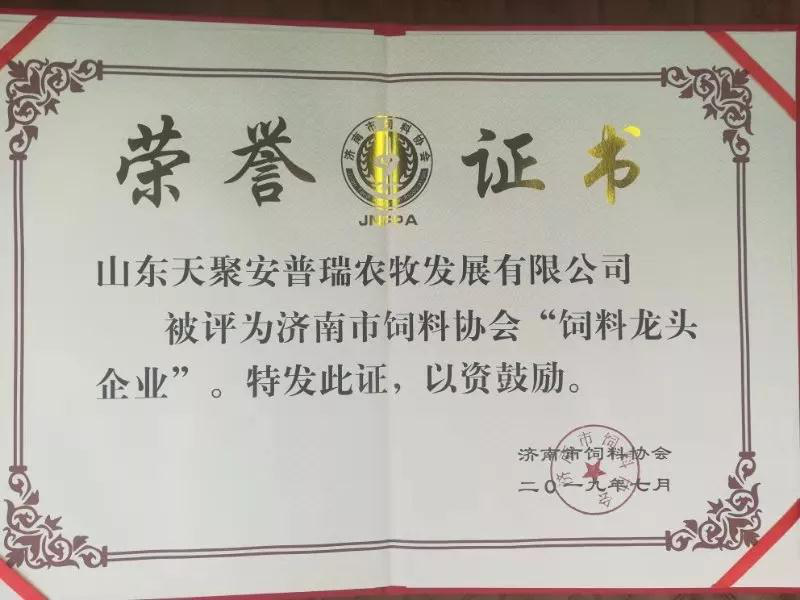 荣誉证书
济南市饲料协会
JNFPA
山东天聚安普瑞农牧发展有限公司
被评为济南市饲料协会“饲料龙头
企业”。特发此证，以资鼓励。
济南市饲料协会
二〇一九年七月
济南市饲料协会